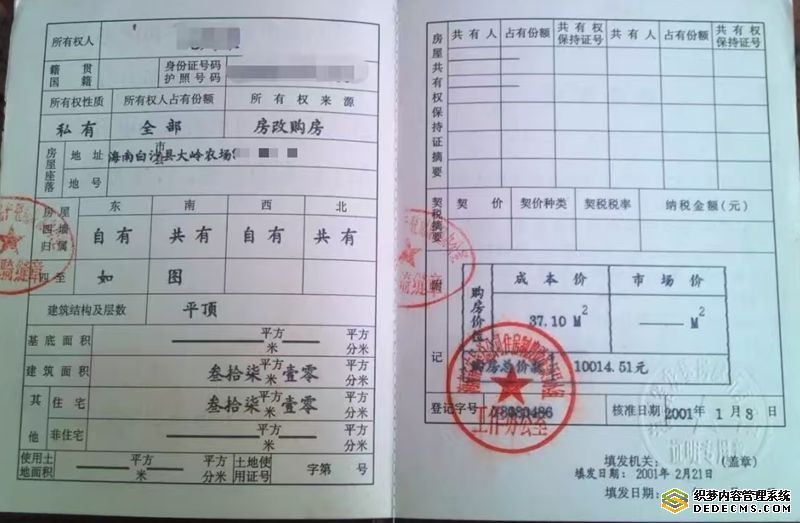 所有权人
籍贯 国籍 身份证号码 护照号码
所有权性质 所有权人占有份额 所有权来源
私有 全部 房改购房
房屋座落 地址 市县 海南白沙县大岭农场
地号
东 南 西 北
房屋四墙归属 自有 共有 自有 共有
四至 如 图
建筑结构及层数 平顶
基底面积 平方米 平方分米
建筑面积 叁拾柒 平方米 壹零 平方分米
其他 住宅 叁拾柒 平方米 壹零 平方分米
非住宅 平方米 平方分米
使用土地面积 平方米 平方分米 土地使用证号 字第 号
房屋共有权保持证摘要 共有人 占有份额 共有权保持证号 共有人 占有份额 共有权保持证号
契税摘要 契价 契价种类 契税税率 纳税金额(元)
附记
购房价值 成本价 市场价
37.10 M² —— M²
购房总价款 10014.51元
登记字号 核准日期 2001年 1月 8日
工作办公室
骑缝章
证明专用章
填发机关: (盖章)
填发日期: 2001年 2月21日
填发日期: 年
织梦内容管理系统
DEDECMS.COM